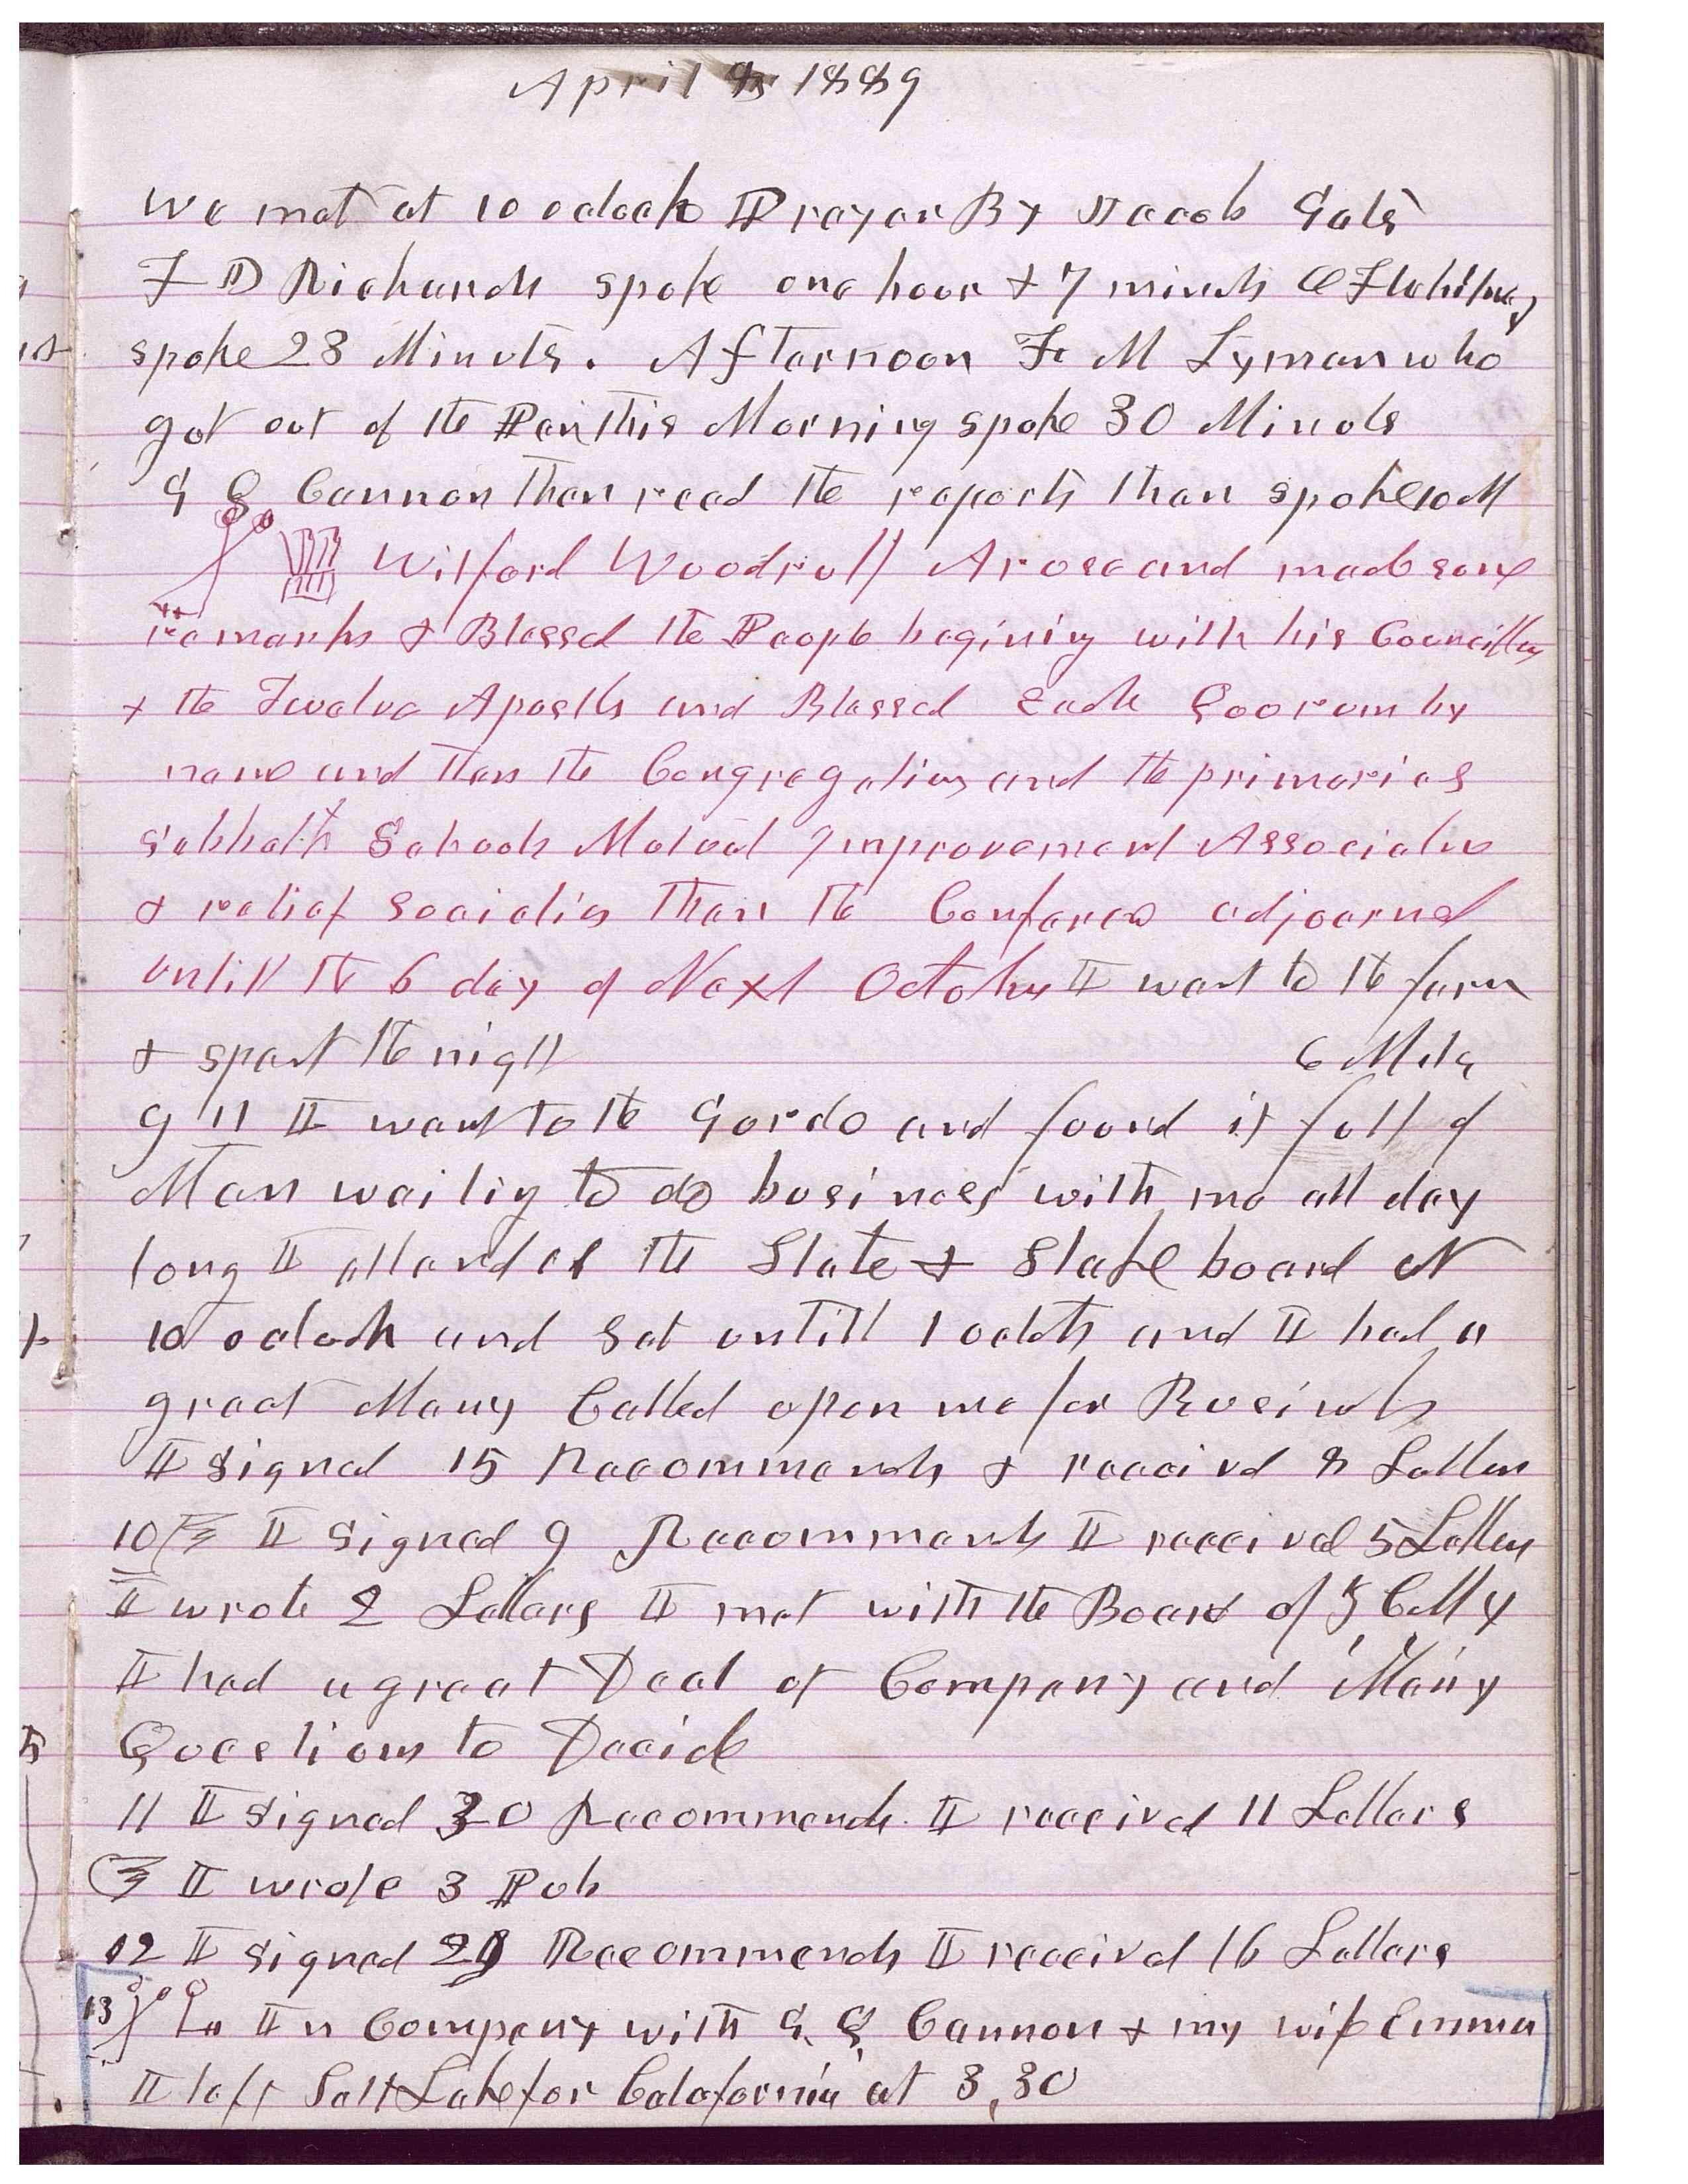 April 8, 1889
We met at 10 oclock Prayer By Jacob Gates
F D Richards spoke one hour & 7 minuts O F Whitney
spoke 28 Minuts. Afternoon F M Lyman who
got out of the Pen this Morning spoke 30 Minuts
G Q Cannon then read the reports then spoke 10 M
Wilford Woodruff Arose and made some
remarks & Blessed the People begining with his Councillors
& the Twelve Apostles and Blessed Each Quorum by
name and then the Congregation and the primaries
Sabbath Schools Mutual Improvement Association
& relief Societies then the Conference adjourned
untill the 6 day of Next October I went to the farm
& spent the night 6 Miles
9 I went to the Gardo and found it full of
Men waiting to do business with me all day
long I attended the State & Stake board at
10 oclock and Sat untill 1 oclok and I had a
great Many Called upon me for Buisness
I signed 15 Recommends & received 8 Letters
10 I signed 9 Recommends I received 5 Letters
I wrote 2 Letters I met with the Board of
I had a great Deal of Company and Many
Questions to Decide
11 I signed 30 Recommends. I received 11 Letters
I wrote 3 Pub
12 I signed Recommends I received 16 Letters
13 In Company with G. Q. Cannon & my wife Emma
I left Salt Lake for Calafornia at 3,30